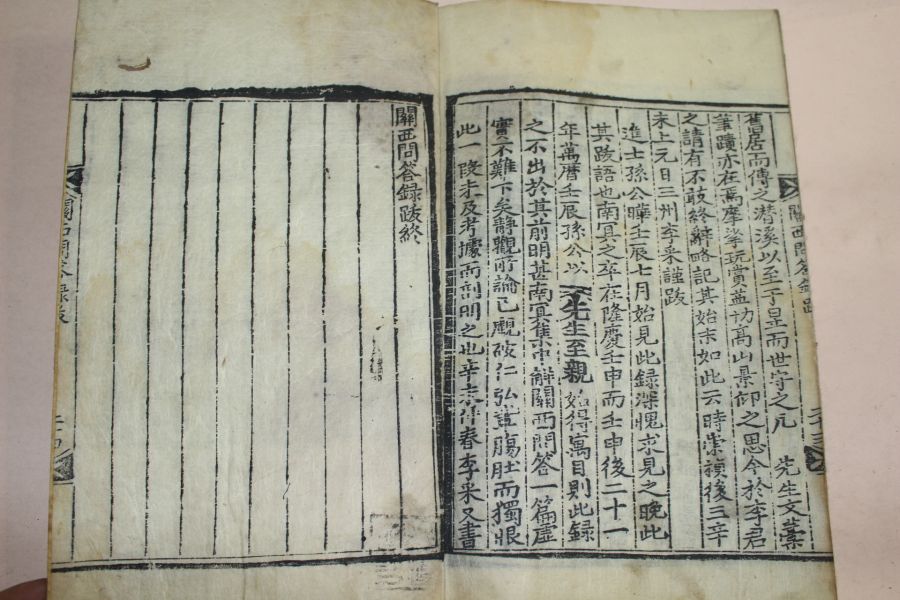 舊居而傳之潛溪以至于是而世守之凡 先生文藁
筆蹟亦在焉摩挲玩賞益切高山景仰之思今於李君
之請有不敢終辭略記其始末如此云時崇禎後三辛
未上元日三州李采謹跋
進士孫公曄壬辰七月始見此録深愧求見之晚此
其跋語也南冥之卒在隆慶壬申而壬申後二十一
年萬曆壬辰孫公以 先生至親始得寓目則此録
之不出於其前明甚南冥集中解關西問答一篇虛
實不難下矣靜觀所論已覷破仁弘置膓肚而獨恨
此一段未及考據而剖明之也辛未仲春李采又書
關西問答録跋終
關西問答録跋
二十三
關西問答録跋
二十四